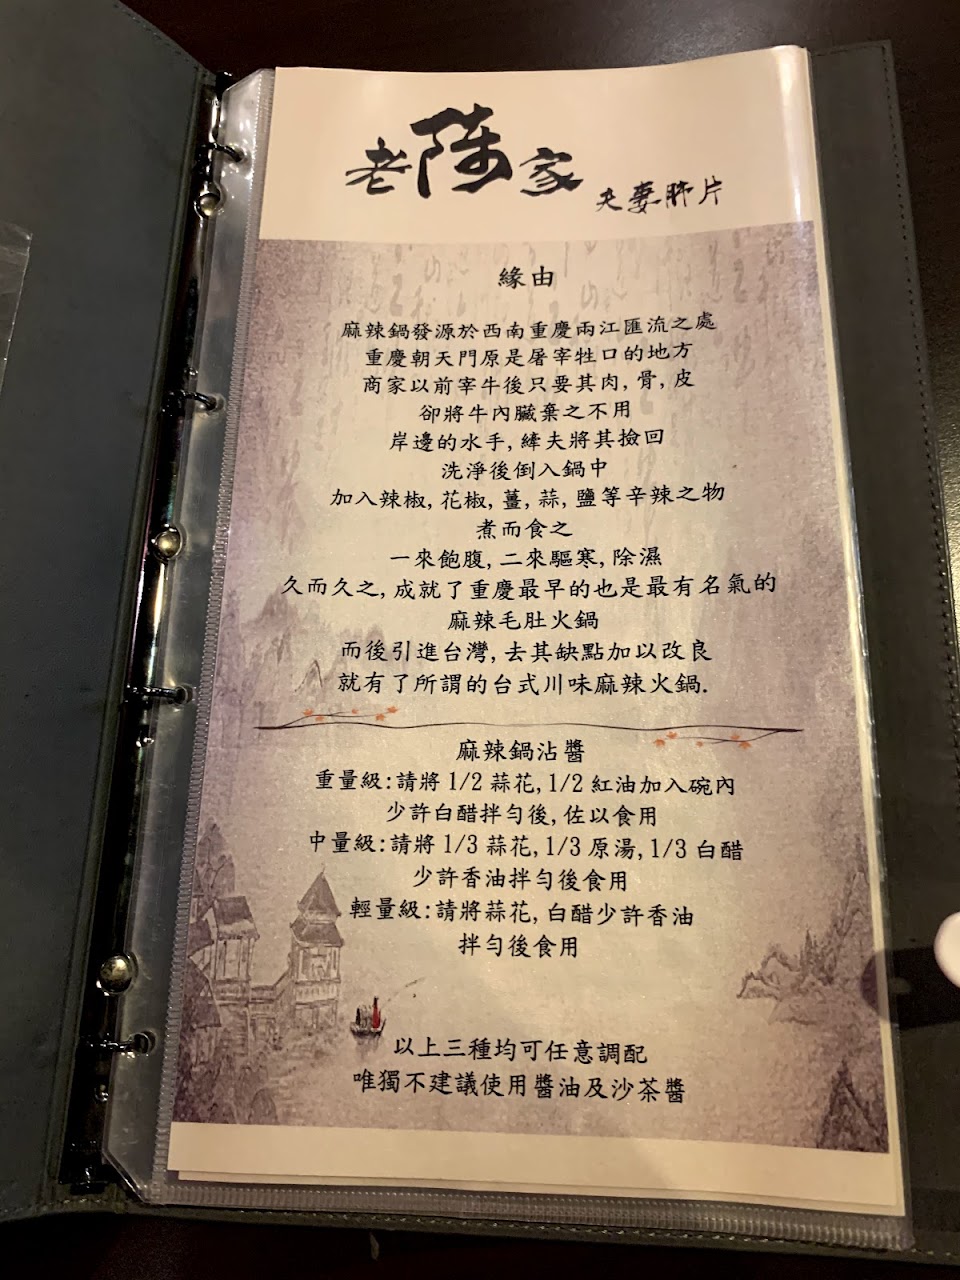 老陳家
夫妻肺片
緣由
麻辣鍋發源於西南重慶兩江匯流之處
重慶朝天門原是屠宰牲口的地方
商家以前宰牛後只要其肉,骨,皮
卻將牛內臟棄之不用
岸邊的水手,縴夫將其撿回
洗淨後倒入鍋中
加入辣椒,花椒,薑,蒜,鹽等辛辣之物
煮而食之
一來飽腹,二來驅寒,除濕
久而久之,成就了重慶最早的也是最有名氣的
麻辣毛肚火鍋
而後引進台灣,去其缺點加以改良
就有了所謂的台式川味麻辣火鍋.
麻辣鍋沾醬
重量級:請將1/2蒜花,1/2紅油加入碗內
少許白醋拌勻後,佐以食用
中量級:請將1/3蒜花,1/3原湯,1/3白醋
少許香油拌勻後食用
輕量級:請將蒜花,白醋少許香油
拌勻後食用
以上三種均可任意調配
唯獨不建議使用醬油及沙茶醬